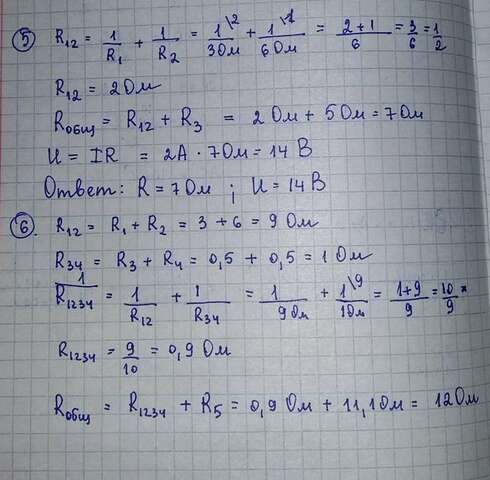 5 R12 = 1/R1 + 1/R2 = 1\2/3Ом + 1\1/6Ом = 2+1/6 = 3/6 = 1/2
R12 = 2Ом
Rобщ = R12 + R3 = 2Ом + 5Ом = 7Ом
U = IR = 2А · 7Ом = 14 В
Ответ: R = 7Ом ; U = 14В
6. R12 = R1 + R2 = 3 + 6 = 9 Ом
R34 = R3 + R4 = 0,5 + 0,5 = 1 Ом
1/R1234 = 1/R12 + 1/R34 = 1/9Ом + 1\9/1Ом = 1+9/9 = 10/9
R1234 = 9/10 = 0,9 Ом
Rобщ = R1234 + R5 = 0,9 Ом + 11,1Ом = 12Ом